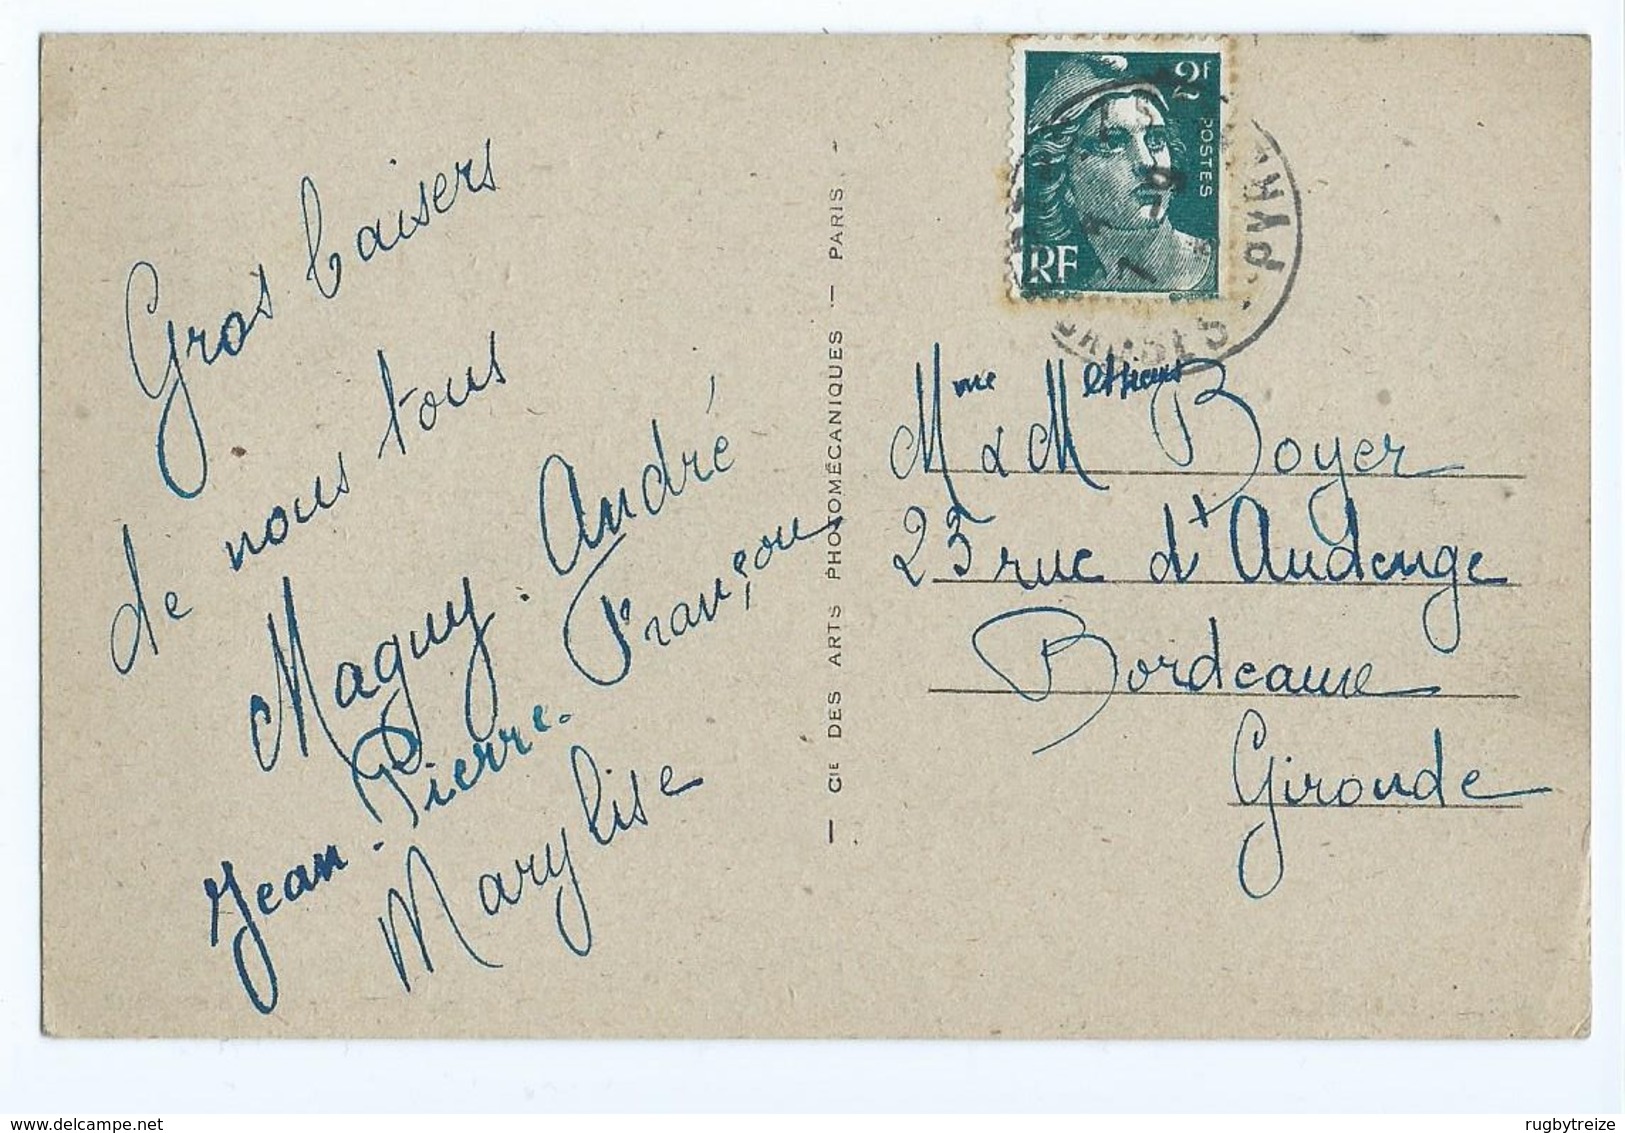 Gros baisers
de nous tous
Maguy. André
Jean-Pierre. Françou
Marylise
— CIE DES ARTS PHOTOMÉCANIQUES — PARIS —
2F
POSTES
RF
Mme & M Boyer
23 rue d'Audenge
Bordeaux
Gironde
delcampe.net
rugbytreize